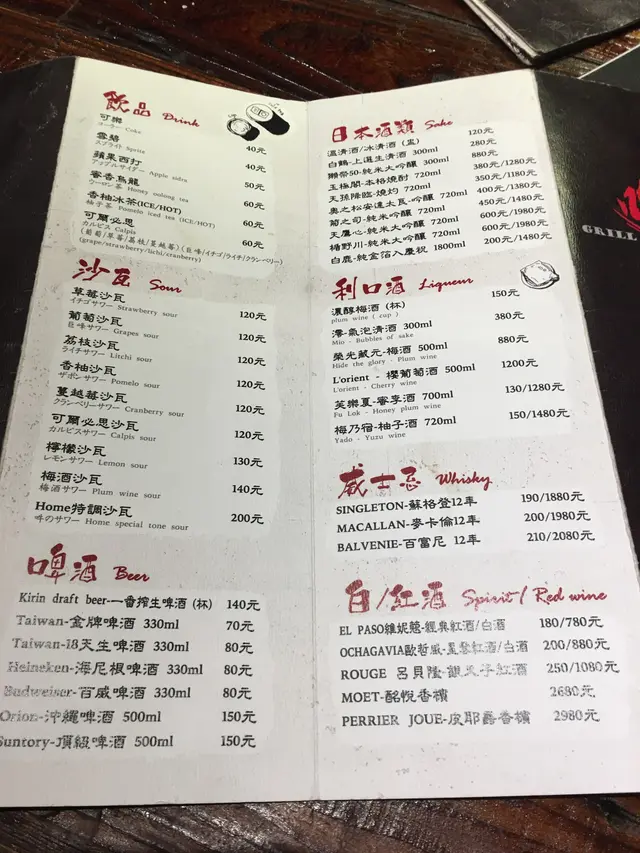 飲品 Drink
可樂
コーラー Coke 40元
雪碧
スプライト Sprite 40元
蘋果西打
アップルサイダー Apple sidra 50元
蜜香烏龍
ウーロン茶 Honey oolong tea 60元
香柚冰茶(ICE/HOT)
柚子茶 Pomelo iced tea (ICE/HOT) 60元
可爾必思
カルピス Calpis 60元
(葡萄/草莓/荔枝/蔓越莓)(巨峰/イチゴ/ライチ/クランベリー)
(grape/strawberry/lichi/cranberry)
沙瓦 Sour
草莓沙瓦
イチゴサワー Strawberry sour 120元
葡萄沙瓦
巨峰サワー Grapes sour 120元
荔枝沙瓦
ライチサワー Litchi sour 120元
香柚沙瓦
ザボンサワー Pomelo sour 120元
蔓越莓沙瓦
クランベリーサワー Cranberry sour 120元
可爾必思沙瓦
カルピスサワー Calpis sour 120元
檸檬沙瓦
レモンサワー Lemon sour 130元
梅酒沙瓦
梅酒サワー Plum wine sour 140元
Home特調沙瓦
サワー Home special tone sour 200元
啤酒 Beer
Kirin draft beer-一番搾生啤酒 (杯) 140元
Taiwan-金牌啤酒 330ml 70元
Taiwan-18天生啤酒 330ml 80元
Heineken-海尼根啤酒 330ml 80元
Budweiser-百威啤酒 330ml 80元
Orion-沖繩啤酒 500ml 150元
Suntory-頂級啤酒 500ml 150元
日本酒類 Sake
溫清酒/冰清酒 (盅) 120元
白鶴-上選生清酒 300ml 280元
獺祭50-純米大吟釀 300ml 880元
玉極閣-本格燒酎 720ml 380元/1280元
天孫降臨-燒灼 720ml 350元/1180元
奧之松安達太良-吟釀 720ml 400元/1380元
菊之司-純米大吟釀 720ml 450元/1480元
天鷹心-純米大吟釀 720ml 600元/1980元
楯野川-純米大吟釀 720ml 600元/1980元
白鹿-純金箔入慶祝 1800ml 200元/1480元
利口酒 Liqueur
濃醇梅酒 (杯) 150元
plum wine ( cup )
澪-氣泡清酒 300ml 380元
Mio - Bubbles of sake
榮光藏元-梅酒 500ml 880元
Hide the glory - Plum wine
L'orient - 櫻葡萄酒 500ml 1200元
L'orient - Cherry wine
芙樂夏-蜜李酒 700ml 130/1280元
Fu Lok - Honey plum wine
梅乃宿-柚子酒 720ml 150/1480元
Yado - Yuzu wine
威士忌 Whisky
SINGLETON-蘇格登12年 190/1880元
MACALLAN-麥卡倫12年 200/1980元
BALVENIE-百富尼 12年 210/2080元
白/紅酒 Spirit/Red wine
EL PASO維妮慈-經典紅酒/白酒 180/780元
OCHAGAVIA歐哲威-星黎紅酒/白酒 200/880元
ROUGE 呂貝隆-紅酒 250/1080元
MOET-酩悅香檳 2680元
PERRIER JOUE-皮耶爵香檳 2980元
GRILL